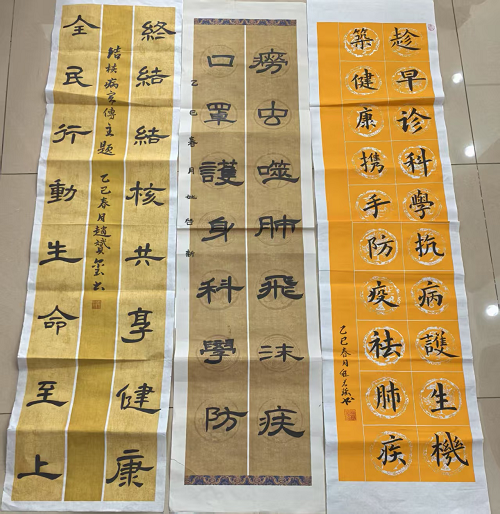 趁早诊科學抗病護生機
築健康携手防疫祛肺疾
乙巳春月
癆虫噬肺飛沫疾
口罩護身科學防
乙巳春月
終結結核共享健康
结核病宣傳主题
乙巳春月趙
全民行動生命至上